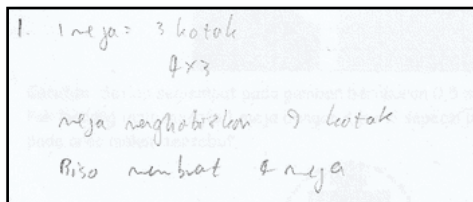 1. 1 meja = 3 kotak
4x3
meja menghabiskan 9 kotak
Bisa membuat 4 meja